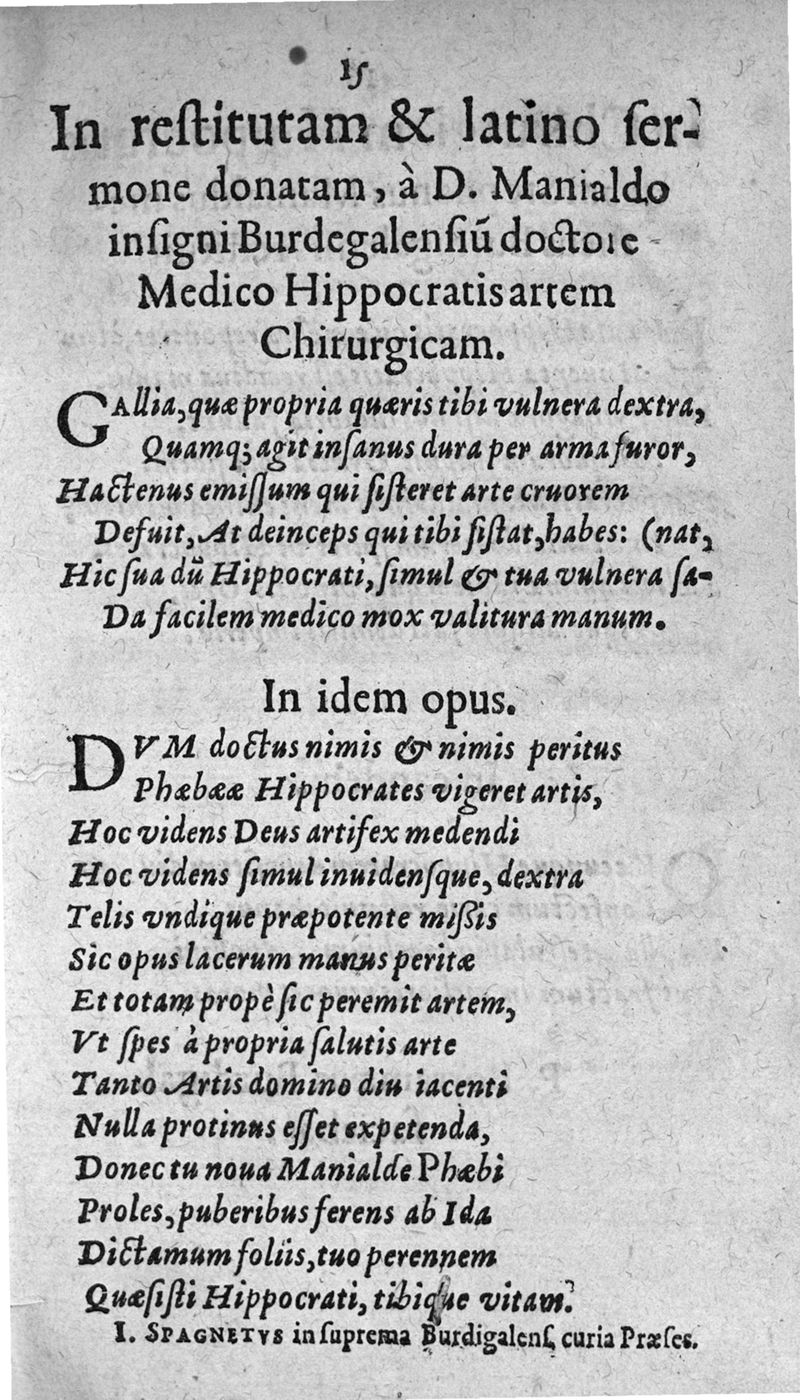 15
In reſtitutam & latino ſer-
mone donatam, à D. Manialdo
inſigni Burdegalenſiũ doctore
Medico Hippocratis artem
Chirurgicam.
GAllia, quæ propria quæris tibi vulnera dextra,
Quamq; agit inſanus dura per arma furor,
Hactenus emiſſum qui ſiſteret arte cruorem
Defuit, At deinceps qui tibi ſiſtat, habes: (nat,
Hic ſua dũ Hippocrati, ſimul & tua vulnera ſa-
Da facilem medico mox valitura manum.
In idem opus.
DVM doctus nimis & nimis peritus
Phæbææ Hippocrates vigeret artis,
Hoc videns Deus artifex medendi
Hoc videns ſimul inuidenſque, dextra
Telis vndique præpotente miſſis
Sic opus lacerum manus peritæ
Et totam propè ſic peremit artem,
Vt ſpes à propria ſalutis arte
Tanto Artis domino diu iacenti
Nulla protinus eſſet expetenda,
Donec tu noua Manialde Phæbi
Proles, puberibus ferens ab Ida
Dictamum foliis, tuo perennem
Quæſiſti Hippocrati, tibique vitam.
I. SPAGNETVS in ſuprema Burdigalenſ, curia Præſes.